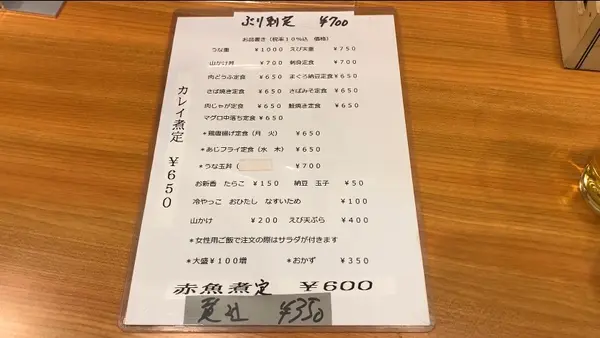 ぶり刺定 ¥700
お品書き(税率10%込 価格)
うな重 ¥1000 えび天重 ¥750
山かけ丼 ¥700 刺身定食 ¥700
肉どうふ定食 ¥650 まぐろ納豆定食 ¥650
さば焼き定食 ¥650 さばみそ定食 ¥650
肉じゃが定食 ¥650 鮭焼き定食 ¥650
マグロ中落ち定食 ¥650
*鶏唐揚げ定食(月 火) ¥650
*あじフライ定食(水 木) ¥650
*うな玉丼( ¥700
お新香 たらこ ¥150 納豆 玉子 ¥50
冷やっこ おひたし なすいため ¥100
山かけ ¥200 えび天ぷら ¥400
*女性用ご飯で注文の際はサラダが付きます
*大盛¥100増 *おかず ¥350
カレイ煮定 ¥650
赤魚煮定 ¥600
¥350